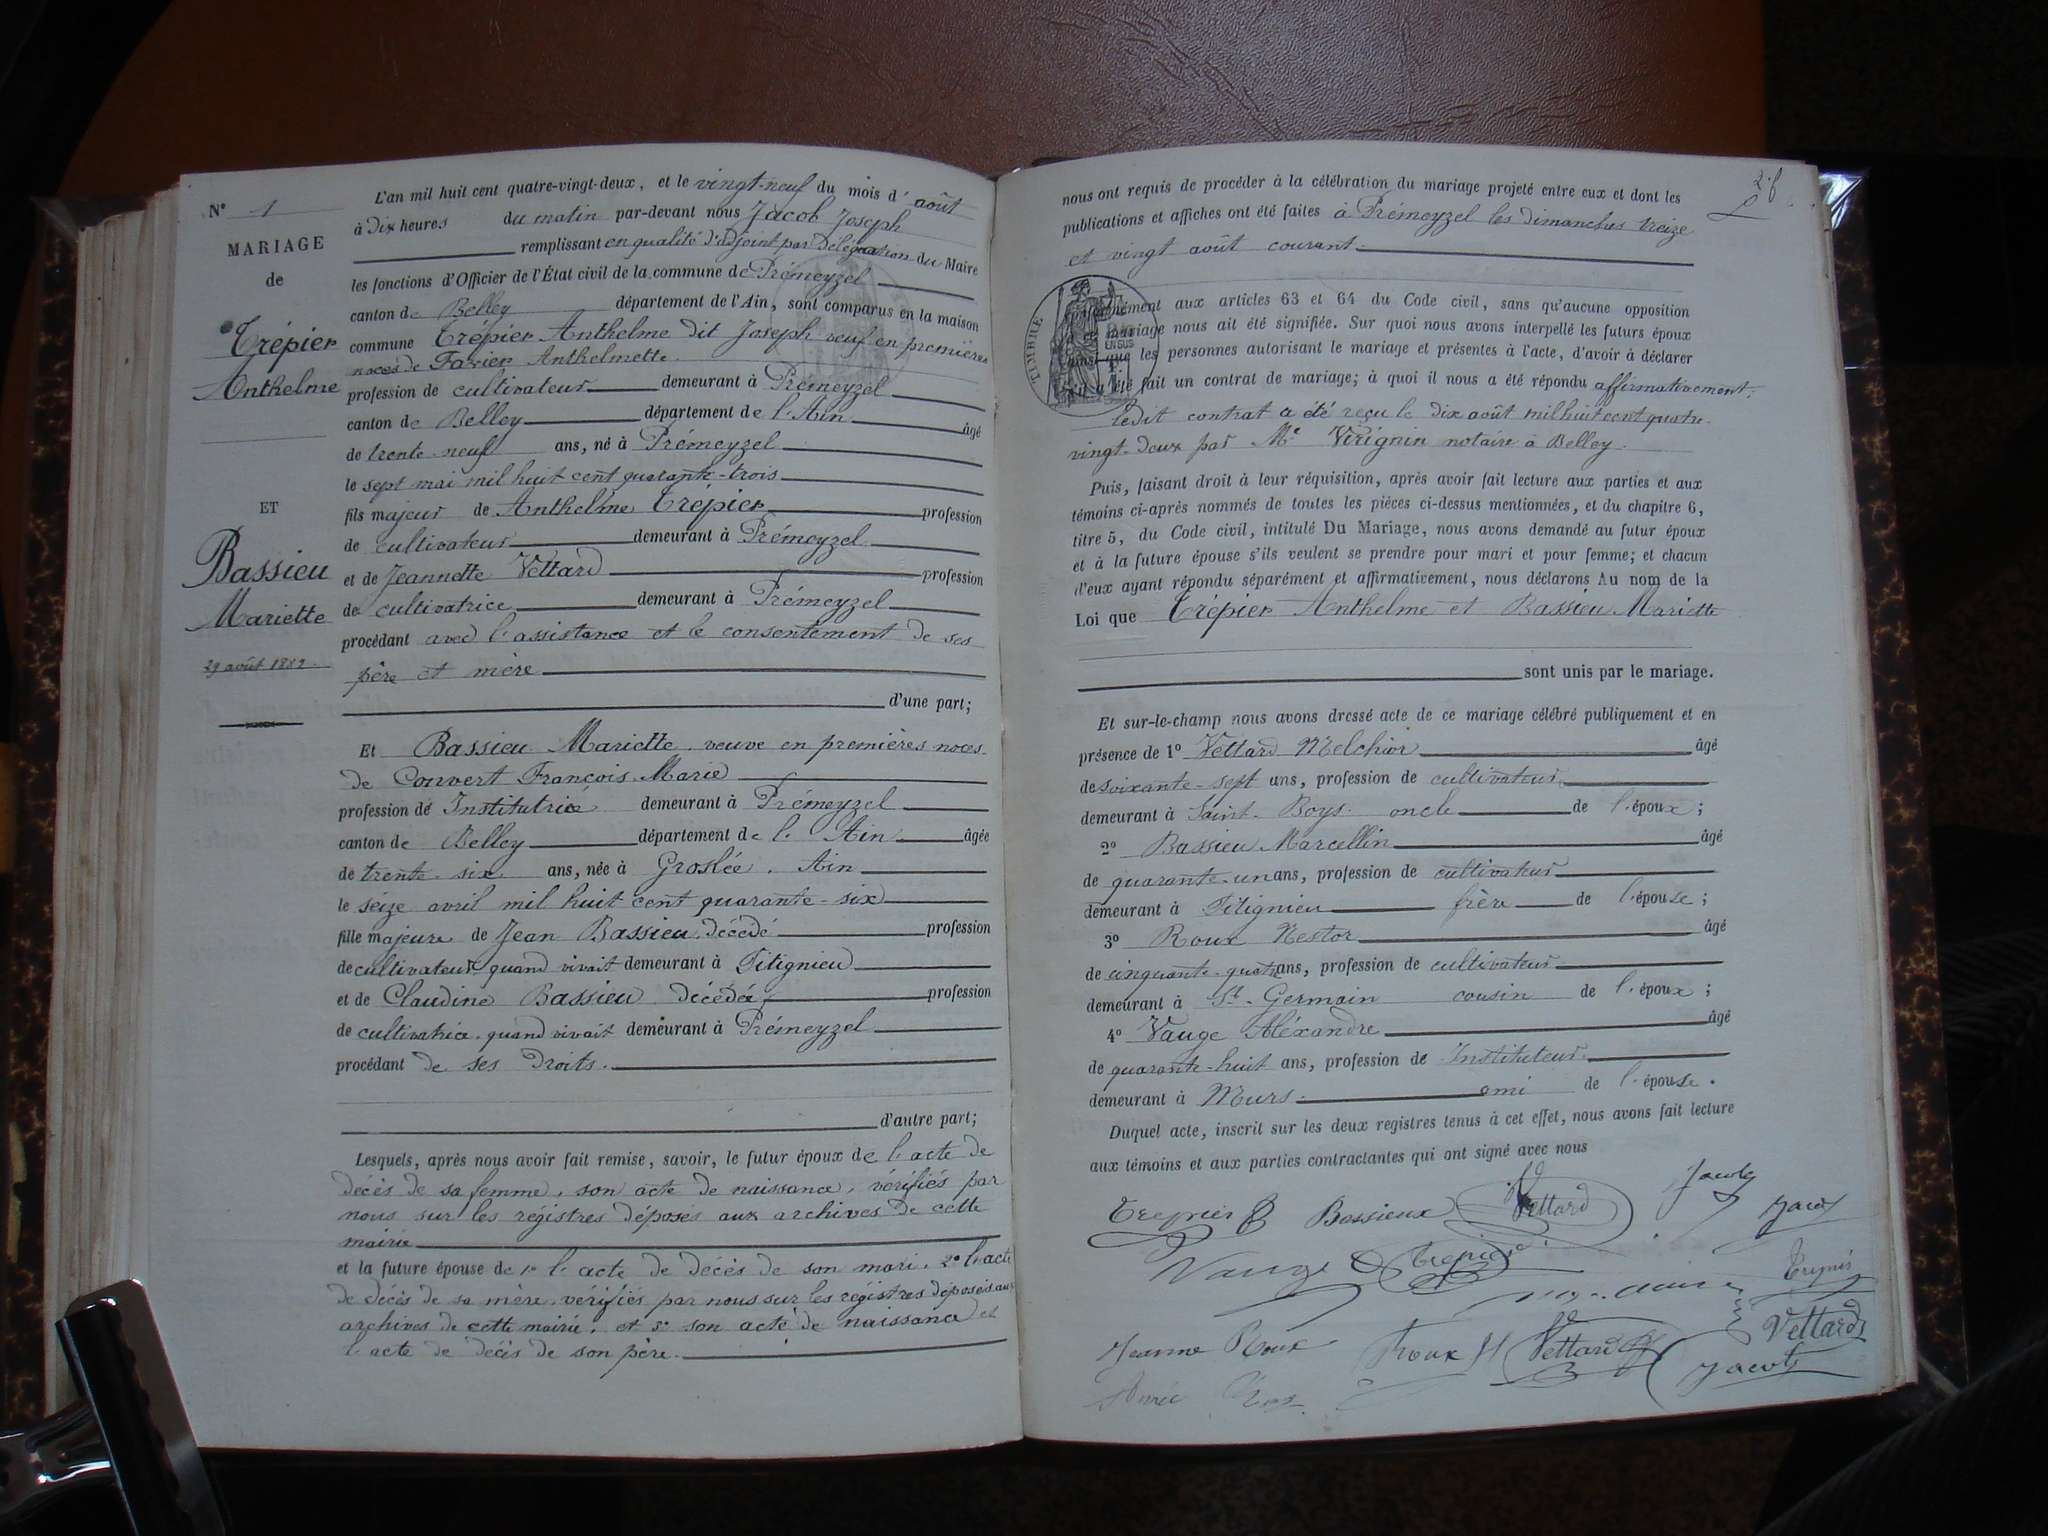 N° 1
MARIAGE
de
Trépier
Anthelme
ET
Bassieu
Mariette
29 août 1882.
L'an mil huit cent quatre-vingt-deux, et le vingt-neuf du mois d'août
à dix heures du matin par-devant nous Jacob Joseph
remplissant en qualité d'adjoint par délégation du Maire
les fonctions d'Officier de l'État civil de la commune de Prémeyzel
canton de Belley département de l'Ain, sont comparus en la maison
commune Trépier Anthelme dit Joseph veuf en premières
noces de Favier Anthelmette.
profession de cultivateur demeurant à Prémeyzel
canton de Belley département de l'Ain âgé
de trente-neuf ans, né à Prémeyzel
le sept mai mil huit cent quarante-trois
fils majeur de Anthelme Trépier profession
de cultivateur demeurant à Prémeyzel
et de Jeannette Vettard profession
de cultivatrice demeurant à Prémeyzel
procédant avec l'assistance et le consentement de ses
père et mère
d'une part;
Et Bassieu Mariette, veuve en premières noces
de Convert François-Marie
profession de Institutrice demeurant à Prémeyzel
canton de Belley département de l'Ain âgée
de trente-six ans, née à Groslée. Ain
le seize avril mil huit cent quarante-six
fille majeure de Jean Bassieu, décédé profession
de cultivateur quand vivait demeurant à Pitignieu
et de Claudine Bassieu décédée, profession
de cultivatrice quand vivait demeurant à Prémeyzel
procédant de ses droits.
d'autre part;
Lesquels, après nous avoir fait remise, savoir, le futur époux de l'acte de
décès de sa femme, son acte de naissance, vérifiés par
nous sur les régistres déposés aux archives de cette
mairie
et la future épouse de 1° l'acte de décès de son mari, 2° l'acte
de décès de sa mère, vérifiés par nous sur les régistres déposés aux
archives de cette mairie, et 3° son acte de naissance et
l'acte de décès de son père.
nous ont requis de procéder à la célébration du mariage projeté entre eux et dont les
publications et affiches ont été faites à Prémeyzel les dimanches treize
et vingt août courant
TIMBRE
EN SUS
conformément aux articles 63 et 64 du Code civil, sans qu'aucune opposition
mariage nous ait été signifiée. Sur quoi nous avons interpellé les futurs époux
ainsi que les personnes autorisant le mariage et présentes à l'acte, d'avoir à déclarer
s'il a été fait un contrat de mariage; à quoi il nous a été répondu affirmativement.
Ledit contrat a été reçu le dix août mil huit cent quatre-
vingt-deux par Me Virignin notaire à Belley.
Puis, faisant droit à leur réquisition, après avoir fait lecture aux parties et aux
témoins ci-après nommés de toutes les pièces ci-dessus mentionnées, et du chapitre 6,
titre 5, du Code civil, intitulé Du Mariage, nous avons demandé au futur époux
et à la future épouse s'ils veulent se prendre pour mari et pour femme; et chacun
d'eux ayant répondu séparément et affirmativement, nous déclarons Au nom de la
Loi que Trépier Anthelme et Bassieu Mariette
sont unis par le mariage.
Et sur-le-champ nous avons dressé acte de ce mariage célébré publiquement et en
présence de 1° Vettard Melchior âgé
de soixante-sept ans, profession de cultivateur
demeurant à Saint-Boys oncle de l'époux;
2° Bassieu Marcellin âgé
de quarante-un ans, profession de cultivateur
demeurant à Pitignieu frère de l'épouse;
3° Roux Nestor âgé
de cinquante-quatre ans, profession de cultivateur
demeurant à St-Germain cousin de l'époux;
4° Vauge Aléxandre âgé
de quarante-huit ans, profession de Instituteur
demeurant à Murs ami de l'épouse.
Duquel acte, inscrit sur les deux registres tenus à cet effet, nous avons fait lecture
aux témoins et aux parties contractantes qui ont signé avec nous
Trepier Bassieux Vettard Jacob Jacob
Vauge Trepier Trepier
Jeanne Roux Roux Vettard Jacob Vettard